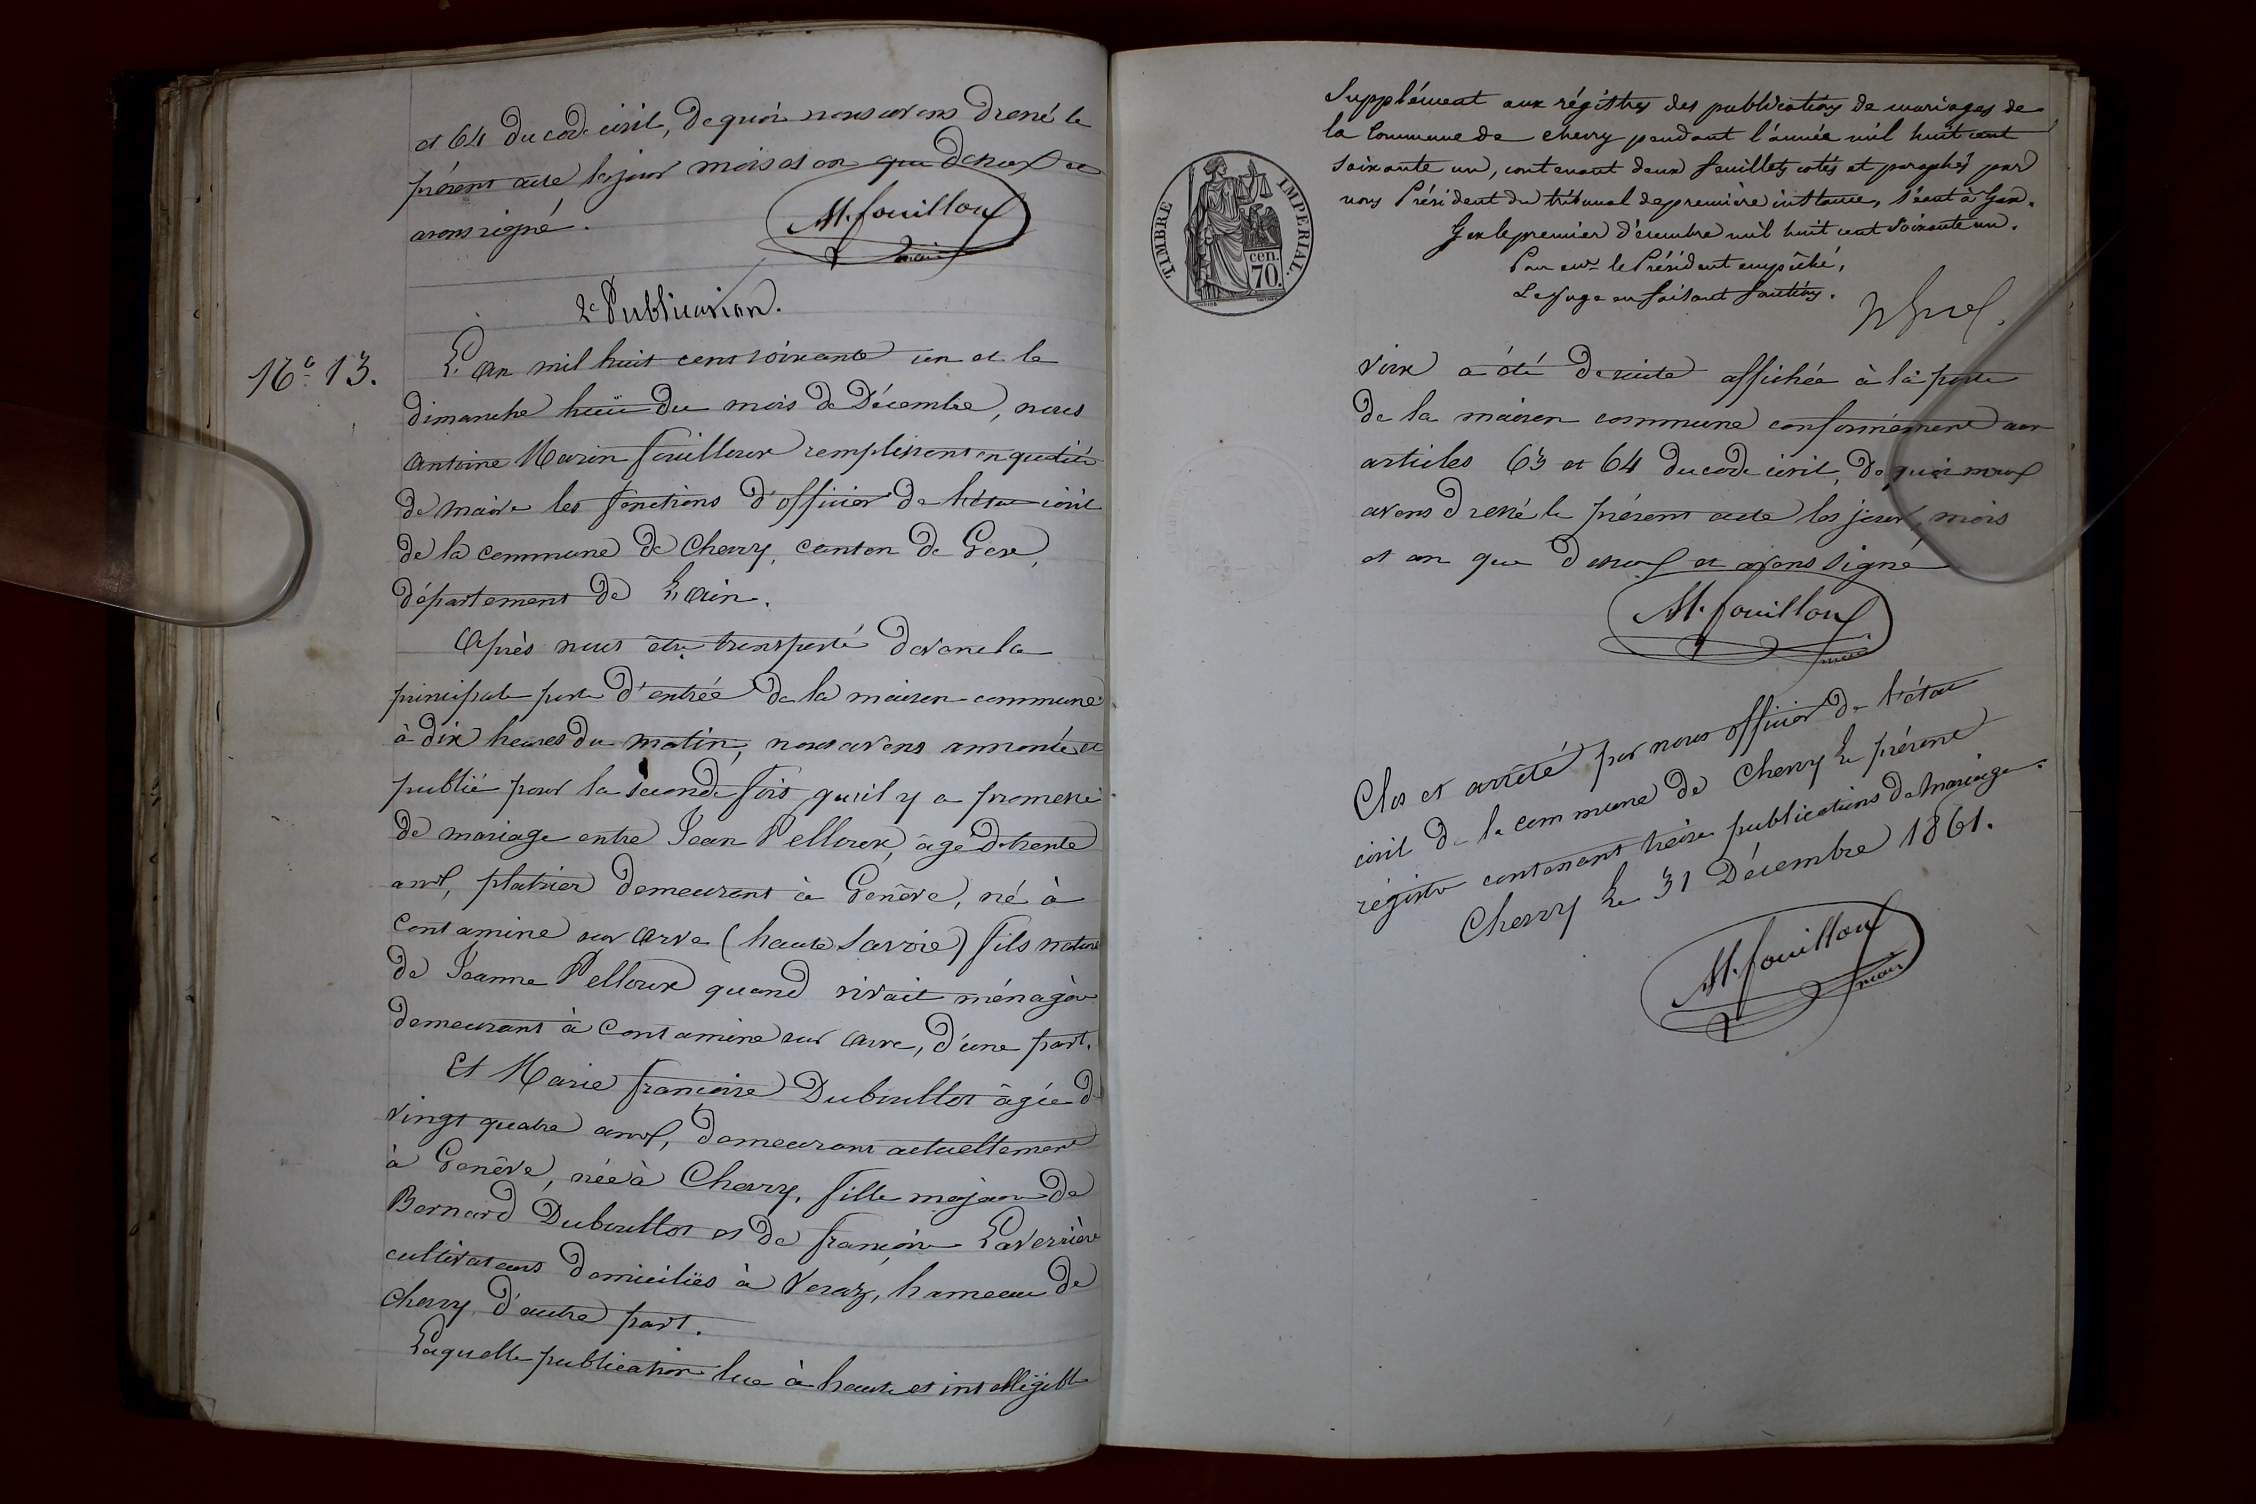 et 64 du code civil, de quoi nous avons dressé le
présent acte les jour mois et an que dessus et
avons signé.
M. fouilloux
maire
2e Publication.
No 13.
L'an mil huit cent soixante un et le
dimanche huit du mois de Décembre, nous
Antoine Marin fouilloux remplissant en qualité
de maire les fonctions d'officier de l'état civil
de la commune de Chevry, canton de Gex,
département de L'ain.
Après nous être transporté devant la
principale porte d'entrée de la maison commune
à dix heures du matin, nous avons annoncé et
publié pour la seconde fois qu'il y a promesse
de mariage entre Jean Pelloux, âgé de trente
ans, platrier demeurant à Genêve, né à
Contamine sur arve (haute Savoie) fils naturel
de Jeanne Pelloux quand vivait ménagère
demeurant à Contamine sur arve, d'une part.
Et Marie françoise Duboullot âgée de
vingt quatre ans, demeurant actuellement
à Genêve, née à Chevry, fille majeure de
Bernard Duboullot et de françoise Laverrière
cultivateurs domiciliés à Veraz, hameau de
Chevry d'autre part.
Laquelle publication lue à haute et intelligible
TIMBRE IMPERIAL.
cen.
70.
Supplément aux régistres des publications de mariages de
la Commune de chevry pendant l'année mil huit cent
soixante un, contenant deux feuillets cotés et paraphés par
nous Président du tribunal de première instance, séant à Gex.
Gex le premier décembre mil huit cent soixante un.
Pour le Président empêché,
Le Juge en faisant fonctions.
voix a été de suite affichée à la porte
de la maison commune conformément aux
articles 63 et 64 du code civil, de quoi nous
avons dressé le présent acte les jour, mois
et an que dessus et avons signé
M. fouilloux
maire
Clos et arrêté par nous officier de l'état
civil de la commune de Chevry le présent
régistre contenant treize publications de Mariage.
Chevry le 31 Décembre 1861.
M. fouilloux
maire